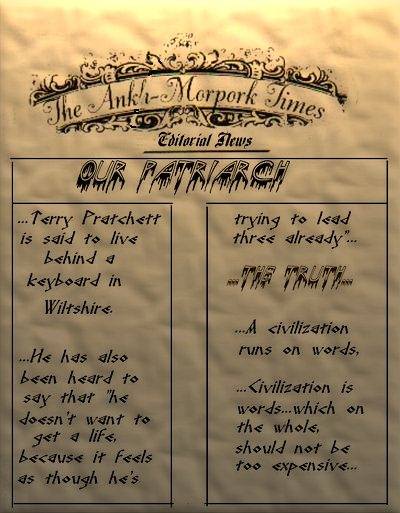 The Ankh-Morpork Times
Editorial News
OUR PATRIARCH
...Terry Pratchett
is said to live
behind a
keyboard in
Wiltshire.
...He has also
been heard to
say that "he
doesn't want to
get a life,
because it feels
as though he's
trying to lead
three already"...
...THE TRUTH...
...A civilization
runs on words,
...Civilization is
words...which on
the whole,
should not be
too expensive...